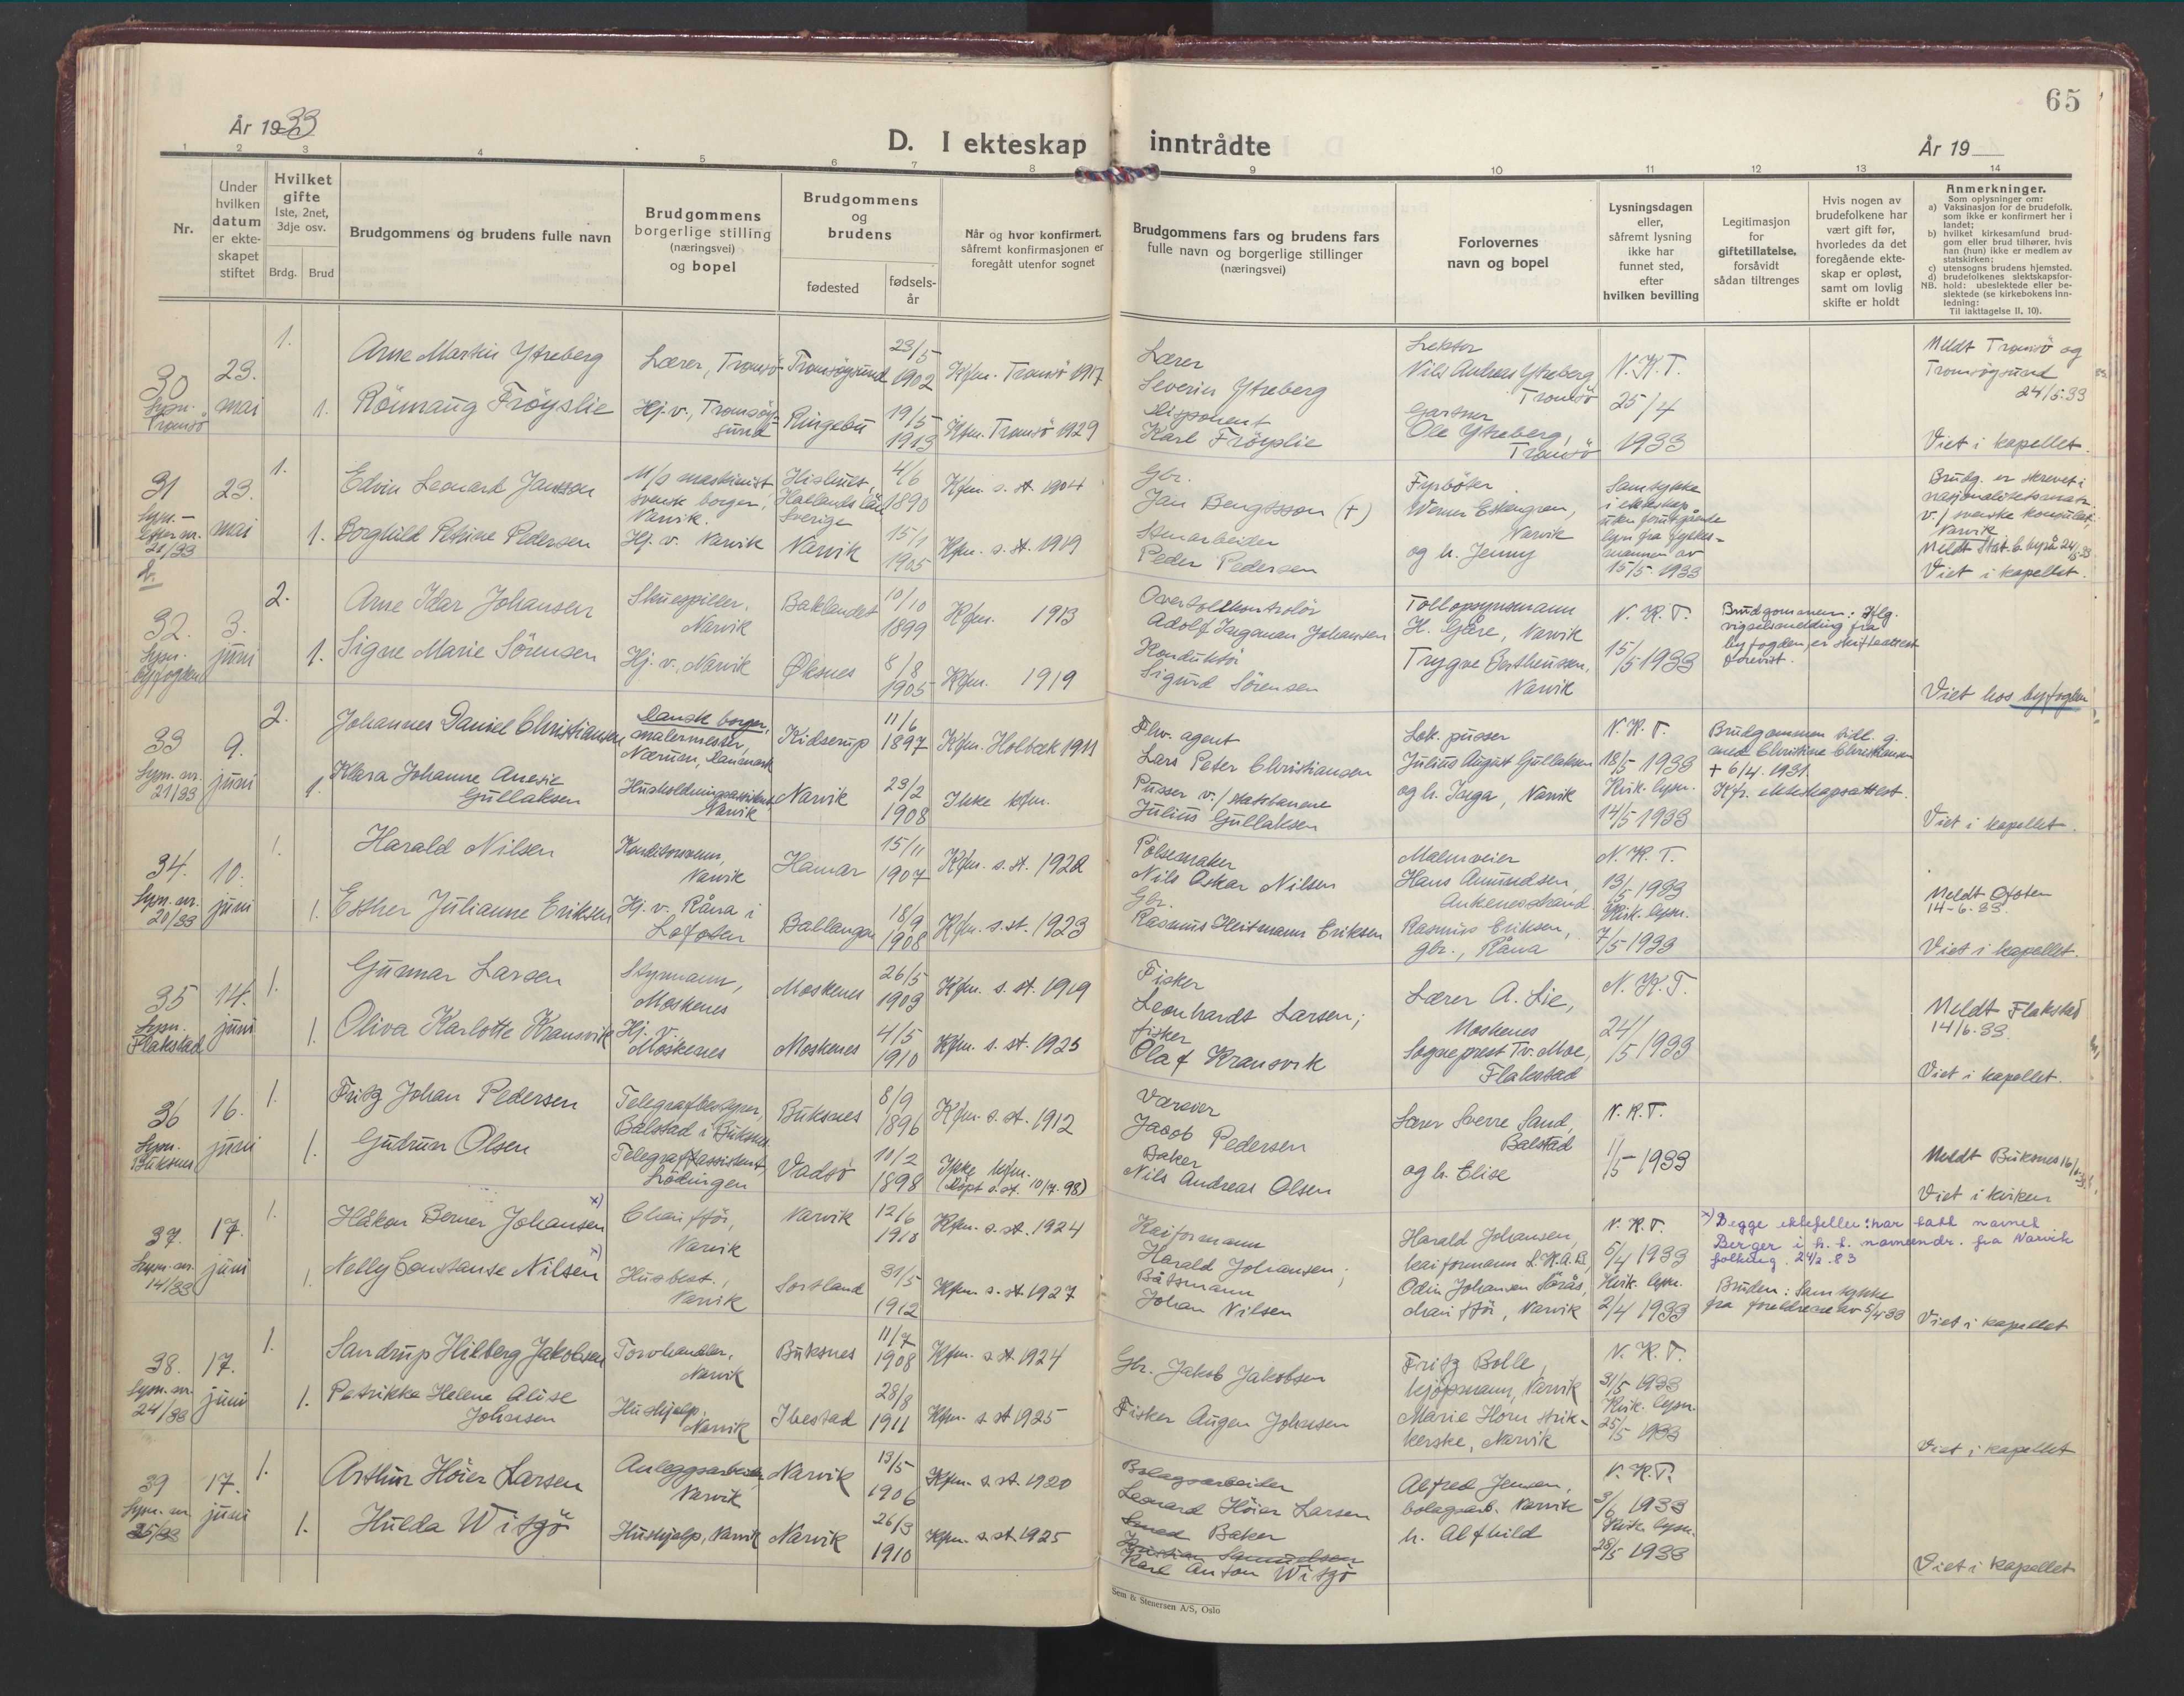 65
År 1933
D. I ekteskap inntrådte
År 19
1 2 3 4 5 6 7 8 9 10 11 12 13 14
Nr.
Under hvilken datum er ekteskapet stiftet
Hvilket gifte
1ste, 2net, 3dje osv.
Brdg. Brud
Brudgommens og brudens fulle navn
Brudgommens borgerlige stilling (næringsvei) og bopel
Brudgommens og brudens
fødested
fødselsår
Når og hvor konfirmert, såfremt konfirmasjonen er foregått utenfor sognet
Brudgommens fars og brudens fars fulle navn og borgerlige stillinger (næringsvei)
Forlovernes navn og bopel
Lysningsdagen eller, såfremt lysning ikke har funnet sted, efter hvilken bevilling
Legitimasjon for giftetillatelse, forsåvidt sådan tiltrenges
Hvis nogen av brudefolkene har vært gift før, hvorledes da det foregående ekteskap er opløst, samt om lovlig skifte er holdt
Anmerkninger.
Som oplysninger om:
a) Vaksinasjon for de brudefolk. som ikke er konfirmert her i landet;
b) hvilket kirkesamfund brudgom eller brud tilhører, hvis han (hun) ikke er medlem av statskirken;
c) utensogns brudens hjemsted.
d) brudefolkenes slektskapsforhold: ubeslektede eller beslektede (se kirkebokens innledning:
NB.
Til iakttagelse II. 10).
30
Lysn. Tromsö
23. mai
1.
Arne Martin Ytreberg
Lærer, Tromsö
Tromsöysund
23/5 1902
Kfm. Tromsö 1917
Lærer
Severin Ytreberg
Lektor
Nils Andreas Ytreberg
Tromsö
N.K.T.
25/4
1933
Meldt Tromsö og
Tromsöysund
24/5.33
1.
Rönnaug Fröyslie
Hj. v., Tromsöysund
Ringebu
19/5 1913
Kfm. Tromsö 1929
Disponent
Karl Fröyslie
Gartner
Ole Ytreberg,
Tromsö
Viet i kapellet.
31
Lysn.
23. mai
1.
Edvin Leonard Jansson
M/s maskinist
svensk borger,
Narvik.
Hallands län
Sverige
4/6 1890
Kfm. s. st. 1904
Gbr.
Jan Bengtsson (+)
Fyrböter
Werner Estengren,
Narvik
Samtykke
i ekteskap
uten forutgående
lysn fra fylkesmannen av
15/5. 1933
Brudg. er skrevet i
nasjonalitetsmatr.
v./ svenske konsulat,
Narvik
Meldt Stat. C. byrå 24/5.33
Viet i kapellet.
1.
Borghild Petrine Pedersen
Hj. v. Narvik
Narvik
15/1 1905
Kfm. s. st. 1919
Stenarbeider
Peder Pedersen
og h. Jenny
32.
Lysn. byfogden
3. juni
2.
Arne Idar Johansen
Skuespiller,
Narvik
Baklandet
10/10 1899
Kfm. 1913
Overtollkontrolör
Adolf Ingeman Johansen
Tollopsynsmann
H. Gåre, Narvik
N. K. T.
15/5 1933
Brudgommen: Iflg.
vigselsmelding fra
byfogden er skifteattest
forevist.
1.
Signe Marie Sörensen
Hj. v., Narvik
Øksnes
8/8 1905
Kfm. 1919
Konduktör
Sigurd Sörensen
Trygve Bertheussen,
Narvik
Viet hos byfogden
33
Lysn. nr. 21/33
9. juni
2.
Johannes Daniel Christiansen
Dansk borger,
malermester,
Nærum, Danmark
Kidserup
11/6 1897
Kfm. Holbæk 1911
Fhv. agent
Lars Peter Christiansen
Lok. pusser
Julius August Gullaksen
N. K. T.
18/5 1933
Kirk. lysn.
14/5 1933
Brudgommen tidl. g.
med Christine Christiansen
+ 6/4. 1931.
Kfr. ekteskapsattest.
1.
Klara Johanne Anesie
Gullaksen
Husholdningsassistent
Narvik
Narvik
23/2 1908
Ikke kfm.
Pusser v./ statsbanene
Julius Gullaksen
og h. Inga, Narvik
Viet i kapellet.
34.
Lysn. nr. 20/33
10. juni
1.
Harald Nilsen
Konditorsvenn,
Narvik
Hamar
15/11 1907
Kfm. s. st. 1922
Pölsemaker
Nils Oskar Nilsen
Malmveier
Hans Amundsen,
Ankenesstrand
N. K. T.
13/5 1933
Kirk. lysn.
7/5 1933
Meldt Ofoten
14-6.33.
1.
Esther Julianne Eriksen
Hj. v. Råna i
Lofoten
Ballangen
18/9 1908
Kfm. s. st. 1923
Gbr.
Rasmus Heitmann Eriksen
Rasmus Eriksen,
gbr., Råna
Viet i kapellet.
35
Lysn. Flakstad
14. juni
1.
Gunnar Larsen
Styrmann,
Moskenes
Moskenes
26/5 1903
Kfm. s. st. 1919
Fisker
Leonhardt Larsen;
Lærer A. Lie,
Moskenes
N. K. T.
24/5 1933
Meldt Flakstad
14/6.33.
1.
Oliva Karlotte Kransvik
Hj. v.
Moskenes
Moskenes
4/5 1910
Kfm. s. st. 1925
fisker
Olaf Kransvik
Sogneprest Tv. Moe,
Flakstad
Viet i kapellet.
36
Lysn. Buksnes
16. juni
1.
Fritz Johan Pedersen
Telegrafbestyrer,
Balstad i Buksnes
Buksnes
8/9 1896
Kfm. s. st. 1912
Væreier
Jacob Pedersen
Lærer Sverre Sand,
Balstad
N. K. T.
1/5 1933
Meldt Buksnes 16/6.33.
1.
Gudrun Olsen
Telegrafassistent,
Lödingen
Vadsö
10/2 1898
Ikke kfm.
(Döpt s. st. 10/7. 98)
Baker
Nils Andreas Olsen
og h. Elise
Viet i kirken
37.
Lysn. nr. 14/33
17. juni
1.
Håkon Berner Johansen x)
Chaufför,
Narvik
Narvik
12/6 1910
Kfm. s. st. 1924
Kaiformann
Harald Johansen;
Harald Johansen,
kaiformann L.K.A.B.,
N. K. T.
5/4 1933
Kirk. lysn.
2/4 1933
x) Begge ektefeller har tatt navnet
Berger i h. t. navneendr. fra Narvik
folkreg. 24/2. 83
1.
Nelly Constanse Nilsen x)
Husbest.,
Narvik
Sortland
31/5 1912
Kfm. s. st. 1927
Båtsmann
Johan Nilsen
Odin Johansen Sörås,
chaufför, Narvik
Bruden: Samtykke
fra foreldrene av 5/4 33
Viet i kapellet
38.
Lysn. nr. 24/33
17. juni
1.
Sandrup Hilberg Jakobsen
Torvhandler,
Narvik
Buksnes
11/7 1908
Kfm. s. st. 1924
Gbr. Jakob Jakobsen
Fritz Bolle,
kjöpmann, Narvik
N. K. T.
31/5 1933
Kirk. lysn.
25/5 1933
1.
Petrikke Helene Alise
Johnsen
Hushjelp,
Narvik
Ibestad
28/8 1911
Kfm. s. st. 1925
Fisker Augen Johnsen
Marie Horn strikkerske, Narvik
Viet i kapellet
39
Lysn. nr 25/33
17. juni
1.
Arthur Höier Larsen
Anleggsarbeider,
Narvik
Narvik
13/5 1906
Kfm. s. st. 1920
Bolagsarbeider
Leonard Höier Larsen
Alfred Jensen,
bolagsarb. Narvik
N. K. T.
3/6 1933
Kirk. lysn.
28/5 1933
1.
Hulda Witzö
Hushjelp, Narvik
Narvik
26/3 1910
Kfm. s. st. 1925
Smed Baker
Kristian Samuelsen
Karl Anton Witzö
h. Alfhild
Viet i kapellet
Sem & Stenersen A/S, Oslo